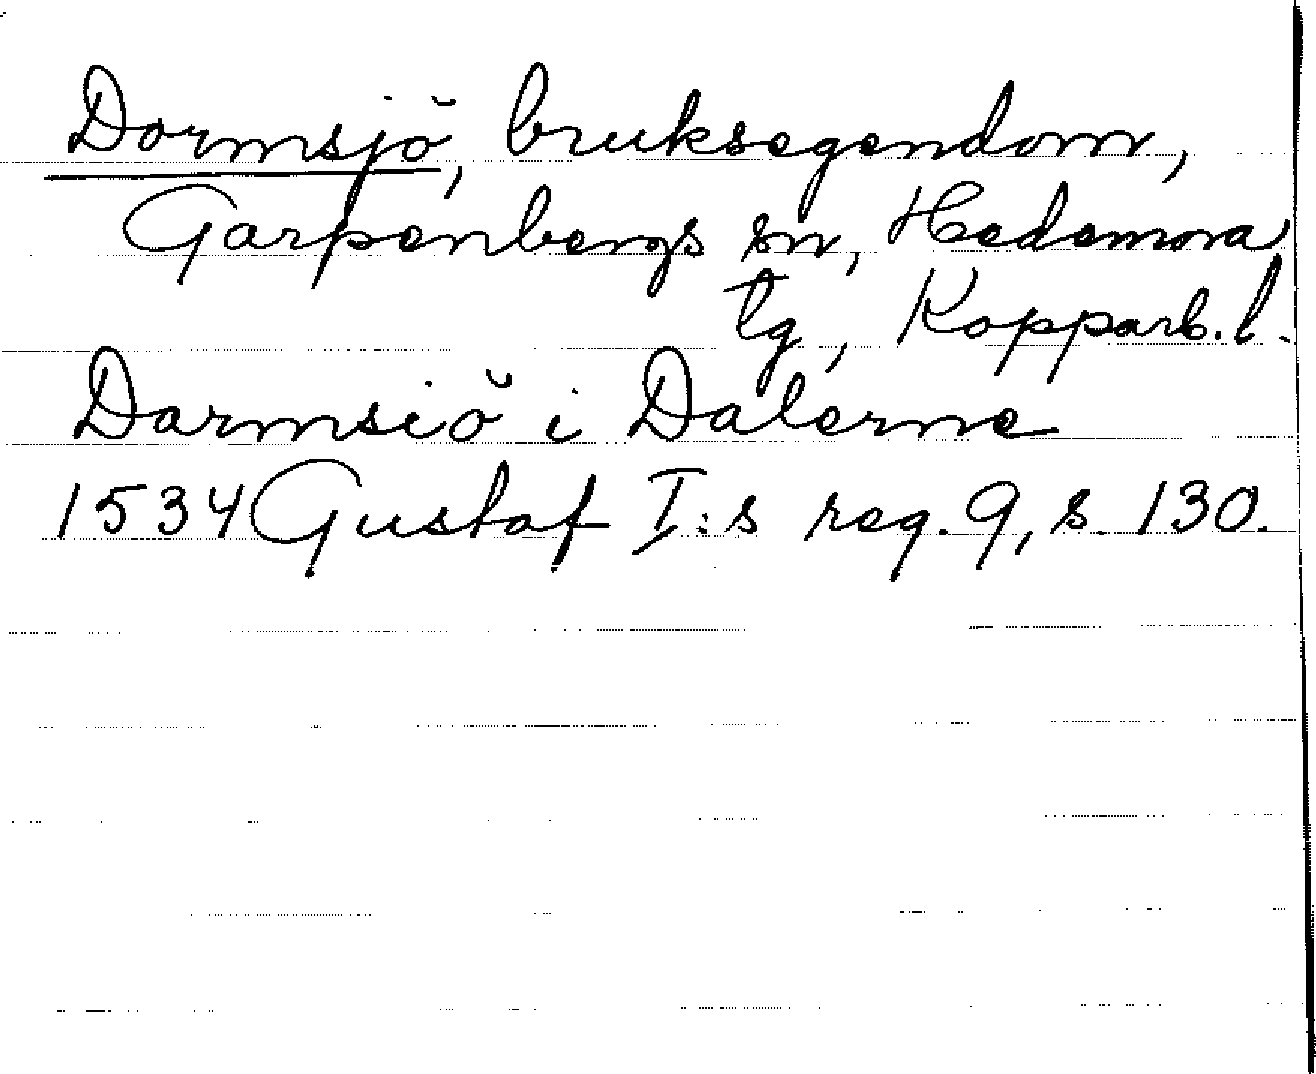 Dormsjö, bruksegendom,
Garpenbergs sn, Hedemora
tg, Kopparb. l.
Darmsiö i Dalerne
1534 Gustaf I:s reg. 9, s. 130.